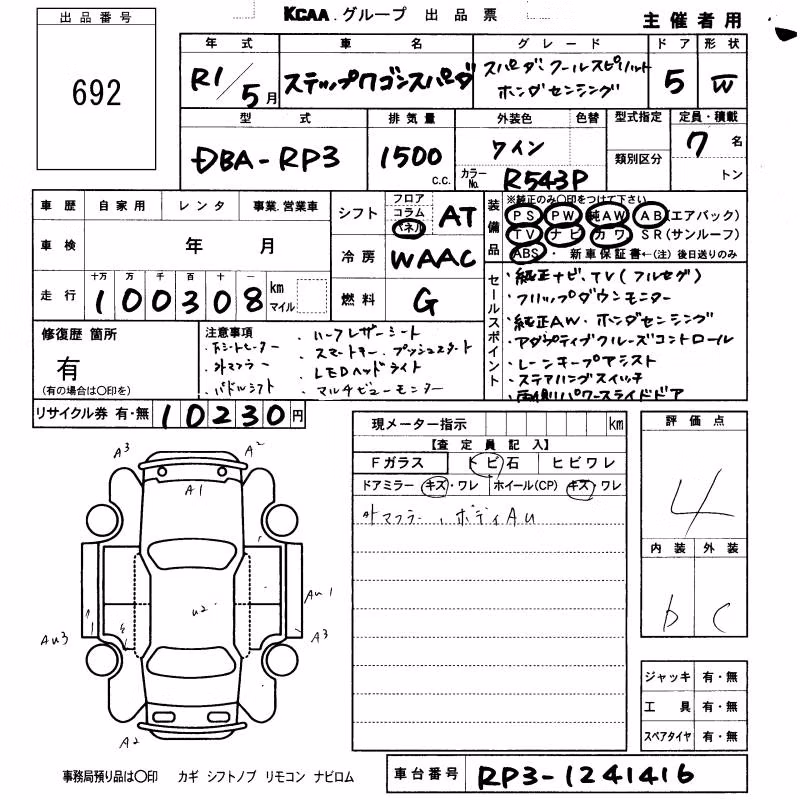 KCAA.グループ 出品票
出品番号
692
主催者用
年式 車名 グレード ドア 形状
R1/5月 ステップワゴンスパーダ スパーダ・クールスピリット 5 W
ホンダセンシング
型式 排気量 外装色 色替 型式指定 定員・積載
DBA-RP3 1500 c.c. ワイン 類別区分 7名
カラーNo. R543P トン
車歴 自家用 レンタ 事業.営業車
シフト フロア コラム パネル AT
装備品 ※純正のみ〇印をつけて下さい
PS PW 純AW AB(エアバック)
TV ナビ カワ SR(サンルーフ)
ABS・ 新車保証書←(注)後日送りのみ
車検 年 月
冷房 WAAC
走行 十万 万 千 百 十 一 km マイル
100308
燃料 G
セールスポイント
・純正ナビ、TV(フルセグ)
・フリップダウンモニター
・純正AW・ホンダセンシング
・アダプティブクルーズコントロール
・レーンキープアシスト
・ステアリングスイッチ
・両側パワースライドドア
修復歴 箇所
有
(有の場合は〇印を)
注意事項 ・ハーフレザーシート
・シートヒーター ・スマートキー、プッシュスタート
・外マフラー ・LEDヘッドライト
・パドルシフト ・マルチビューモニター
リサイクル券 有・無 10230円
現メーター指示 km
【査定員記入】
Fガラス トビ石 ヒビワレ
ドアミラー キズ・ワレ ホイール(CP) キズ・ワレ
外マフラー、ボディAu
評価点
4
内装 外装
b c
A3 A2
A1
U2
AU1
AU3
A3
A2
ジャッキ 有・無
工具 有・無
スペアタイヤ 有・無
事務局預り品は〇印 カギ シフトノブ リモコン ナビロム
車台番号 RP3-1241416